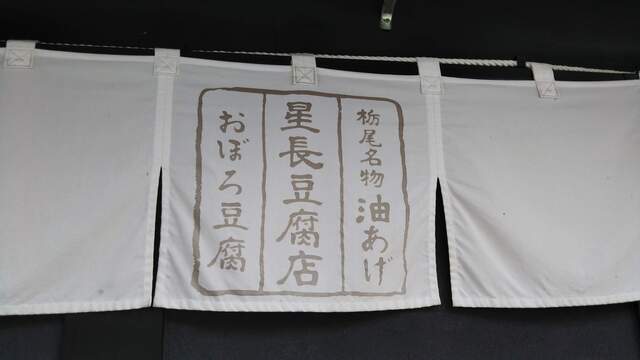 栃尾名物 油あげ
星長豆腐店
おぼろ豆腐